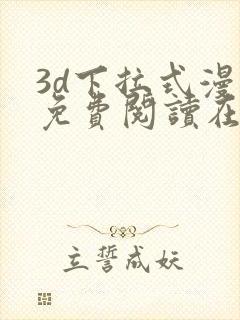 3d下拉式漫
免費閱讀在
立誓成妖